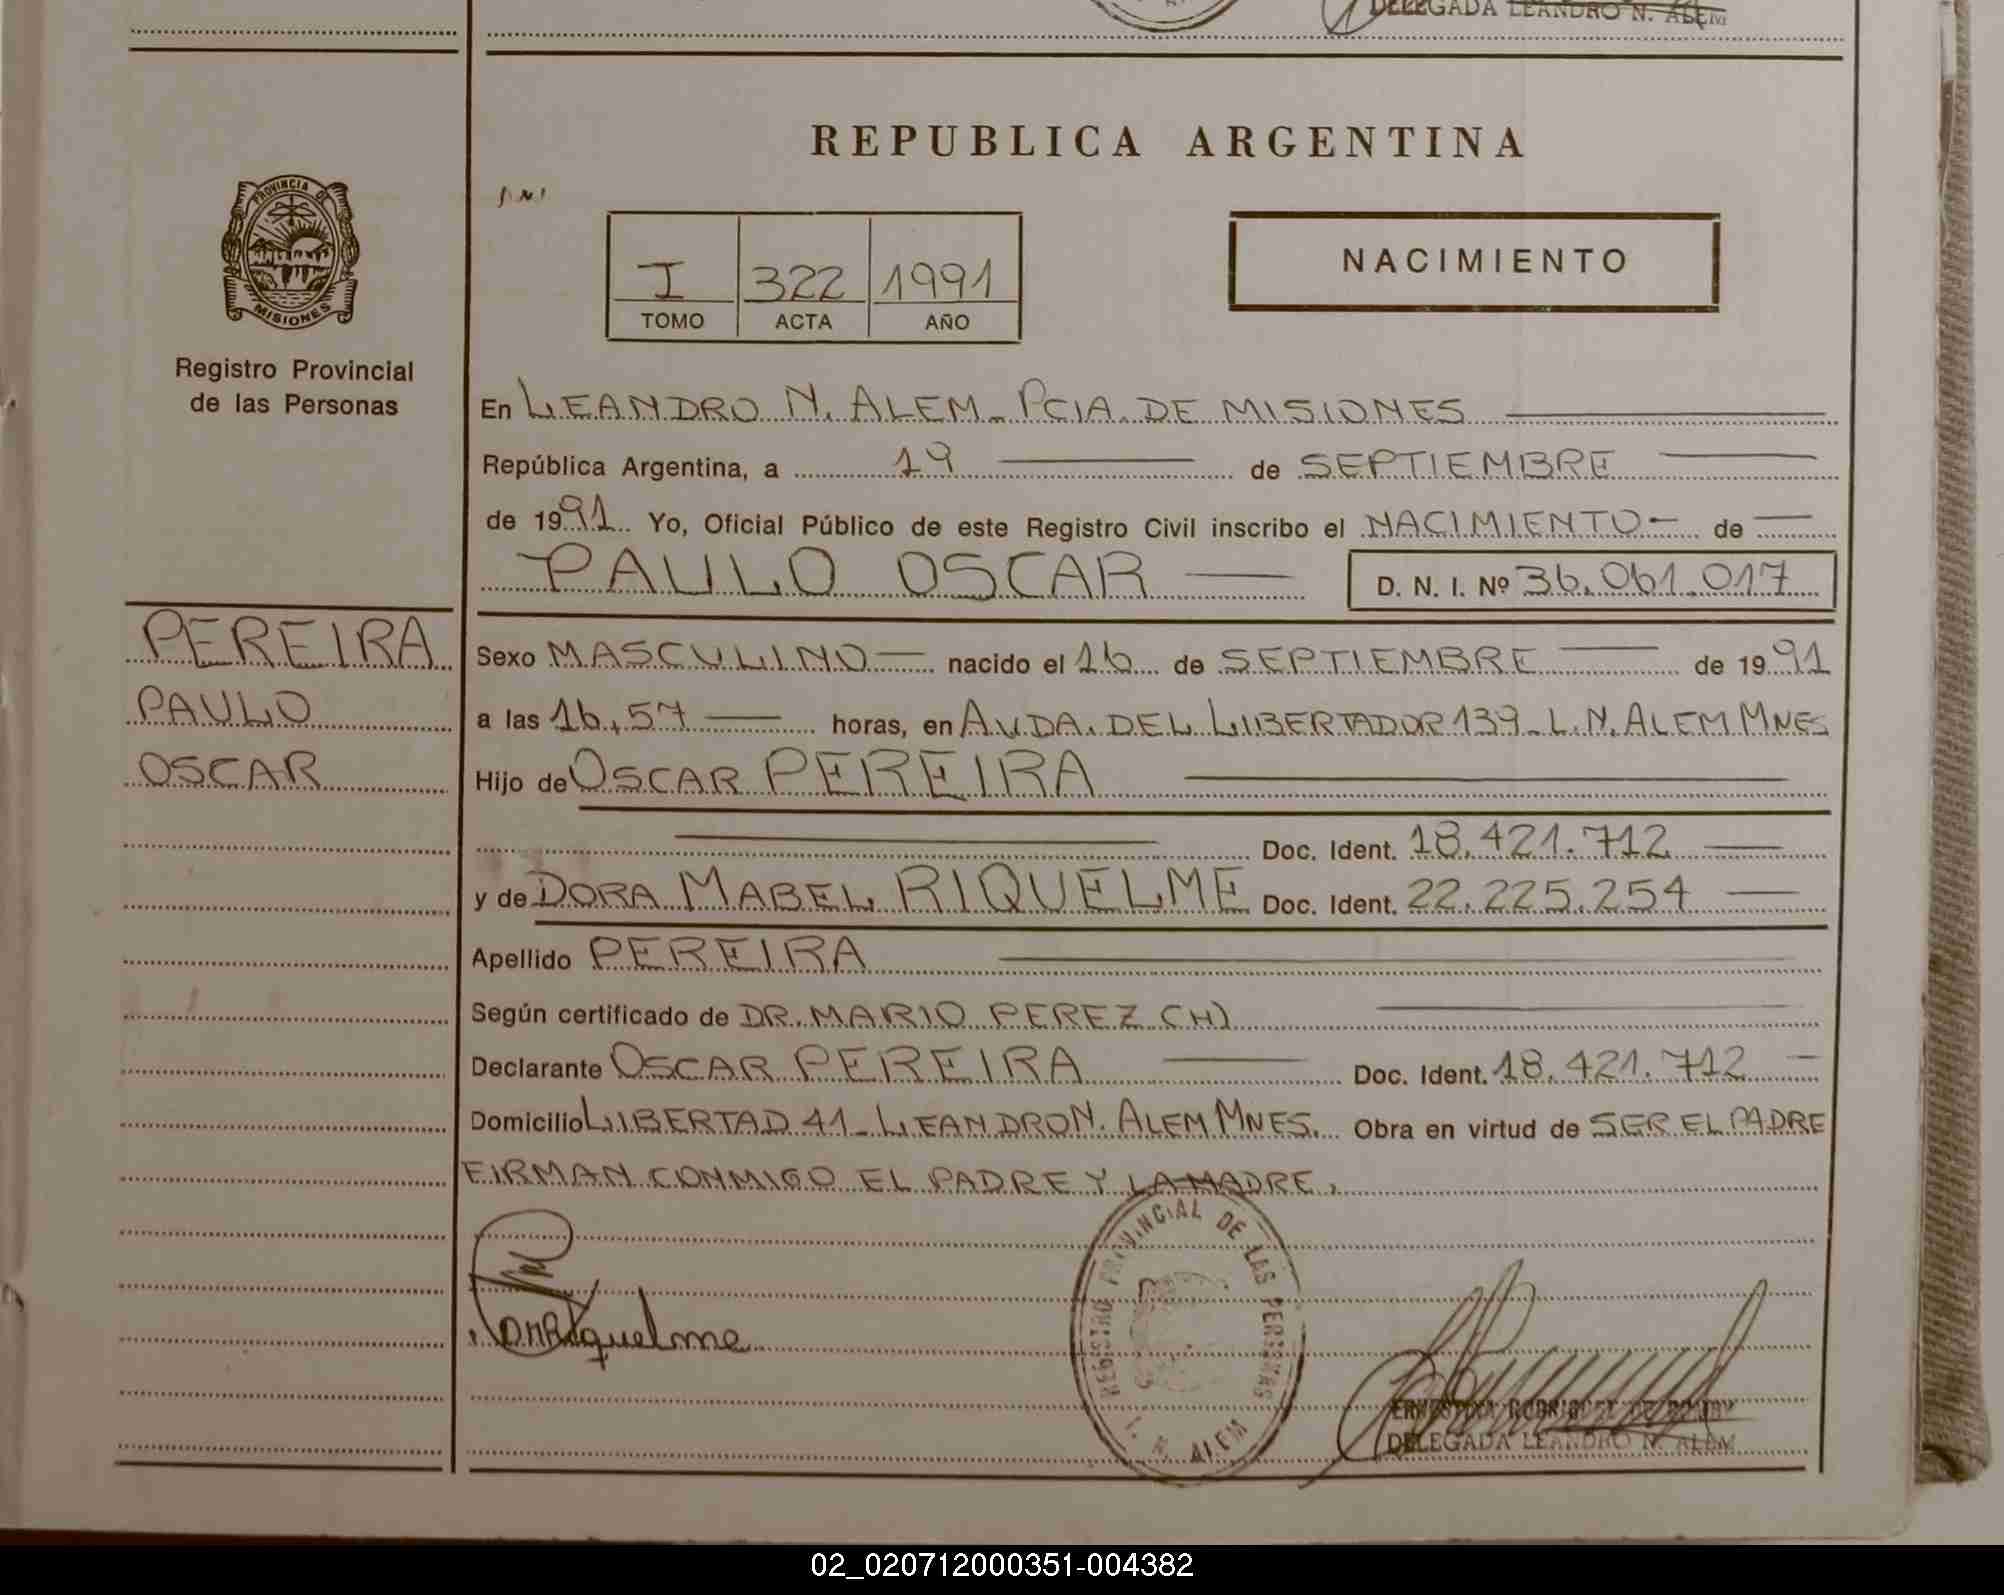 DELEGADA LEANDRO N. ALEM
REPUBLICA ARGENTINA
PROVINCIA DE
MISIONES
Registro Provincial
de las Personas
I 322 1991
TOMO ACTA AÑO
NACIMIENTO
En LEANDRO N. ALEM - PCIA. DE MISIONES
República Argentina, a 19 de SEPTIEMBRE
de 1991 Yo, Oficial Público de este Registro Civil inscribo el NACIMIENTO - de
PAULO OSCAR D. N. I. Nº 36.061.017
PEREIRA
PAULO
OSCAR
Sexo MASCULINO nacido el 16 de SEPTIEMBRE de 1991
a las 16,57 horas, en AVDA. DEL LIBERTADOR 139 - L.N. ALEM MNES
Hijo de OSCAR PEREIRA
Doc. Ident. 18.421.712
y de DORA MABEL RIQUELME Doc. Ident. 22.225.254
Apellido PEREIRA
Según certificado de DR. MARIO PEREZ (H)
Declarante OSCAR PEREIRA Doc. Ident. 18.421.712
Domicilio LIBERTAD 41 - LEANDRO N. ALEM MNES. Obra en virtud de SER EL PADRE
FIRMAN CONMIGO EL PADRE Y LA MADRE.
REGISTRO PROVINCIAL DE LAS PERSONAS
L. N. ALEM
Riquelme
ERNESTINA RODRIGUEZ DE
DELEGADA LEANDRO N. ALEM
02_020712000351-004382